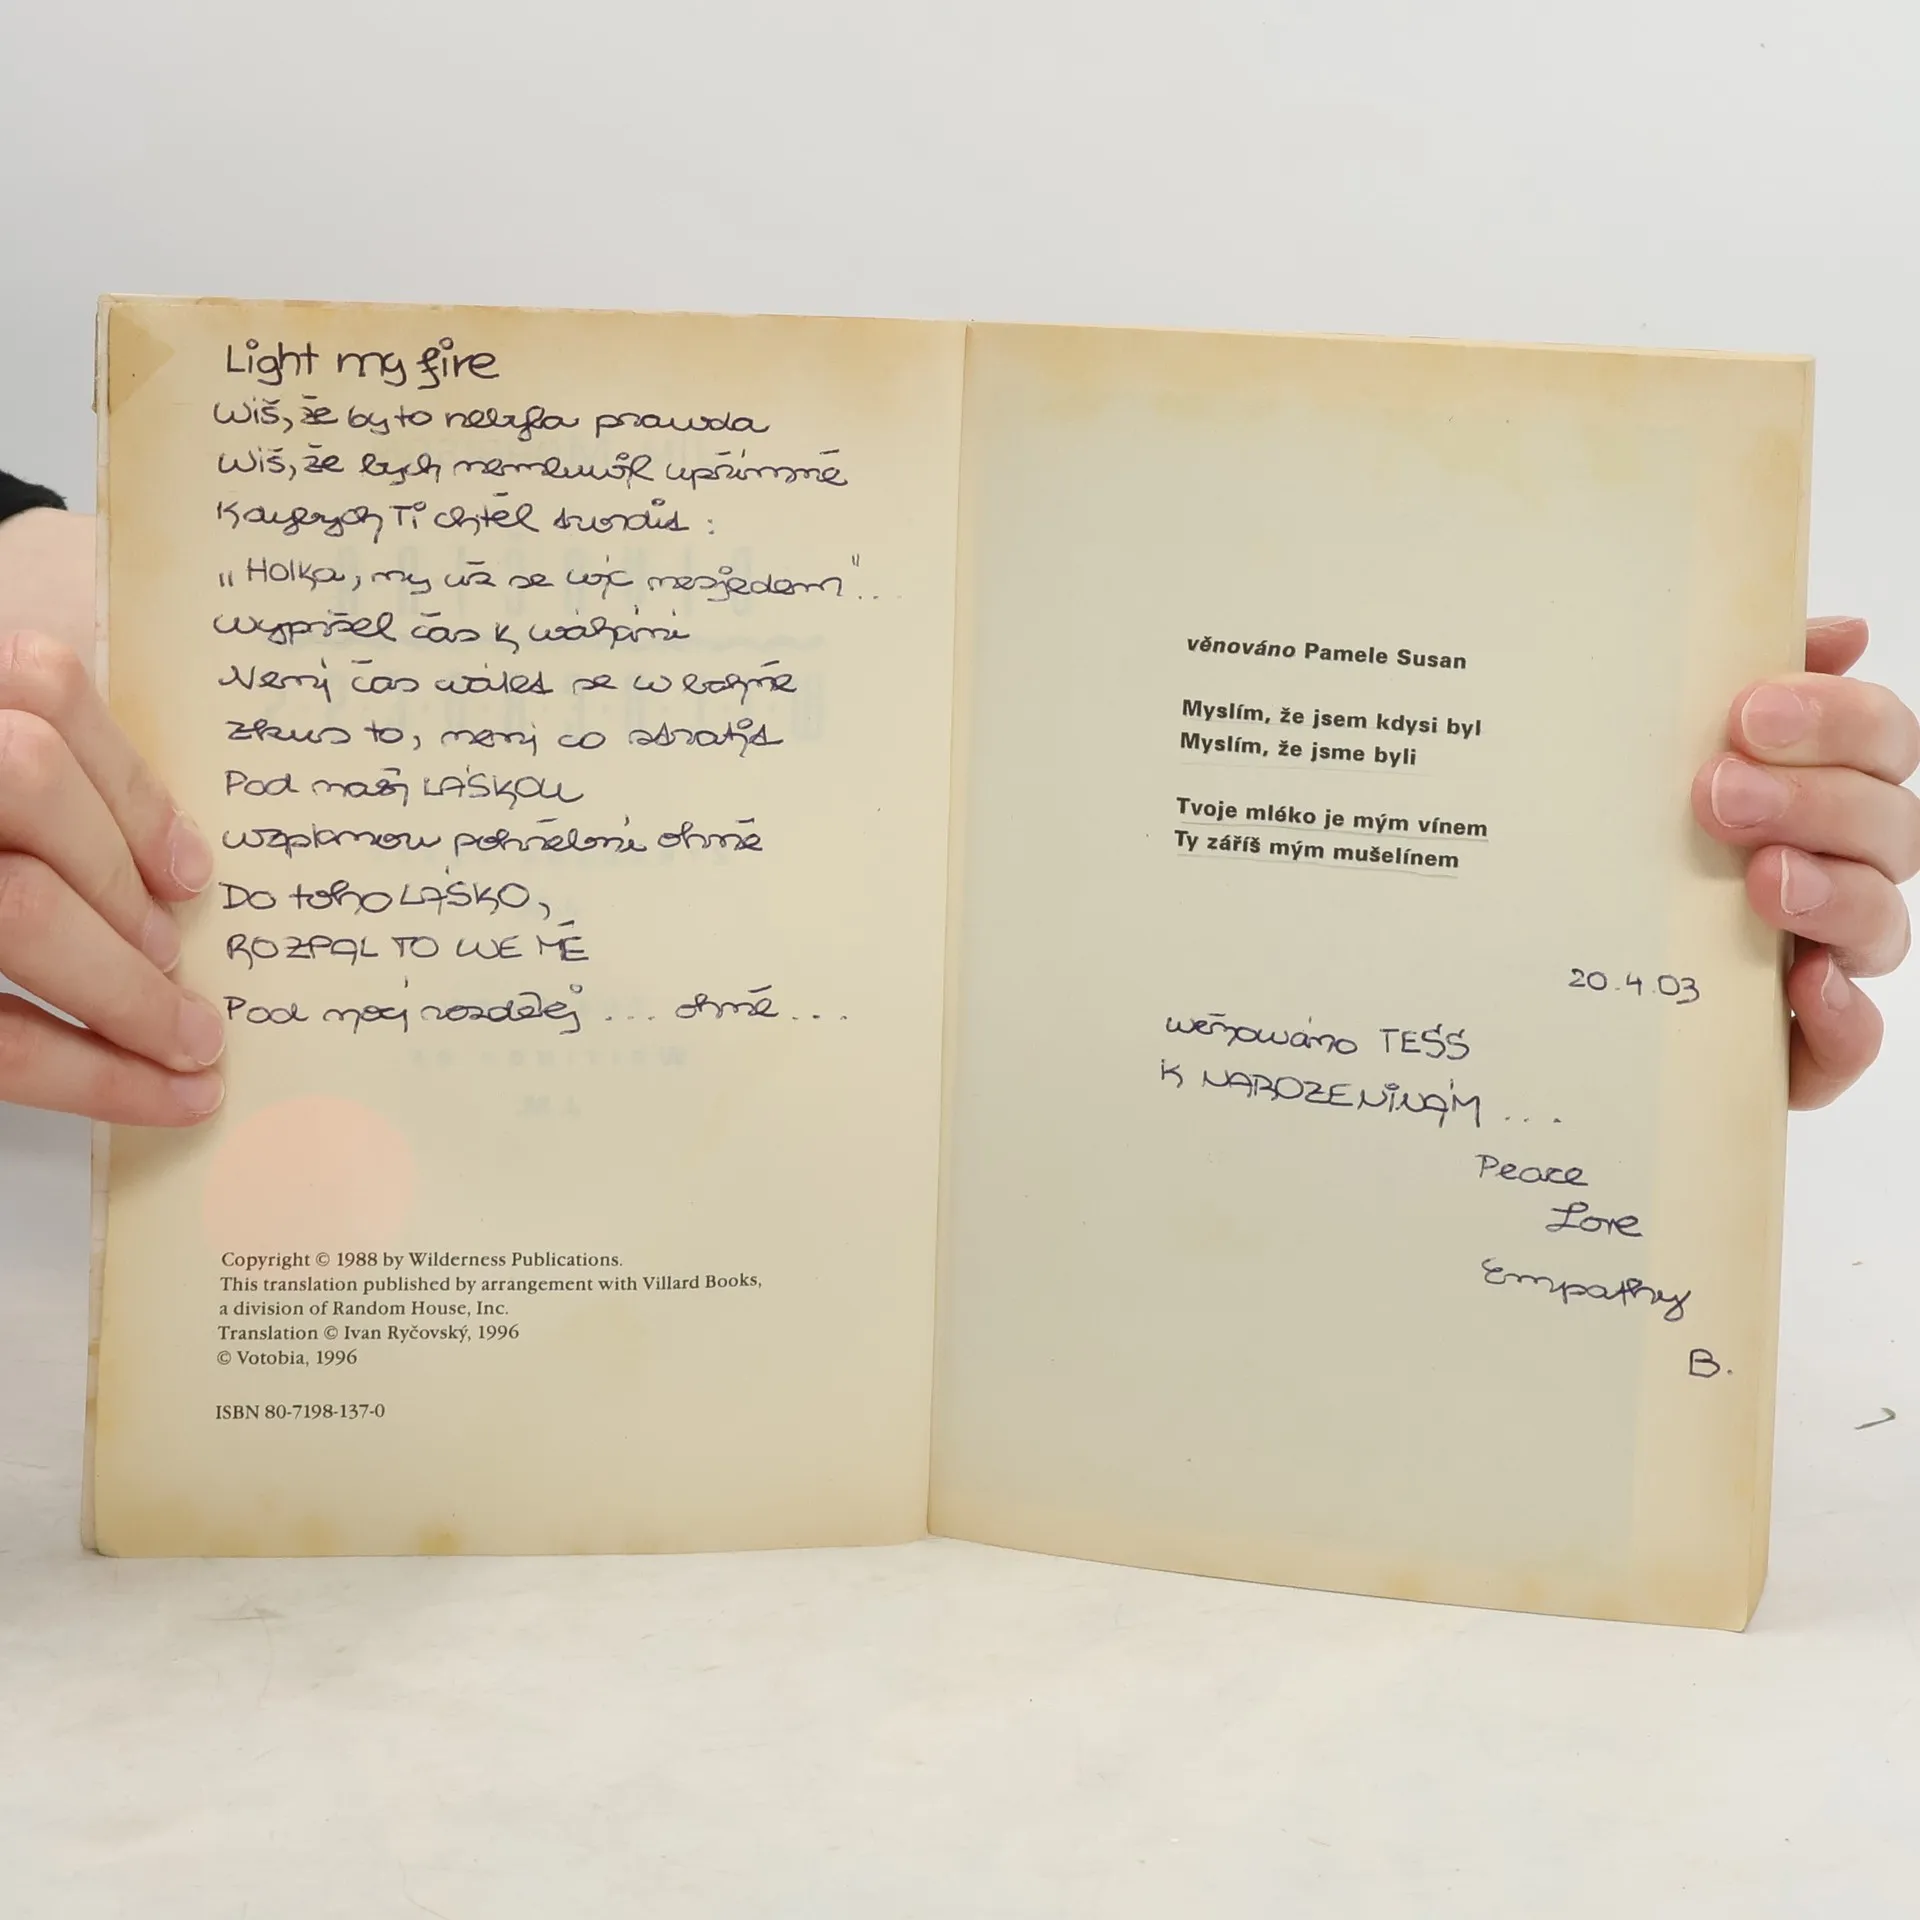 Light my fire
Wiš, že by to nebyla prawda
Wiš, že bych nemluwil upřímně
Kdybych Ti chtěl twrdit :
„Holka, my už se wíc nesjedem"...
Wypršel čas k wáhání
Není čas wálet se w bahně
Zkus to, není co ztratit
Pod naší LÁSKOU
wzplanou pohřební ohně
Do toho LÁSKO,
ROZPAL TO WE MĚ
Pod noci rozdělej ... ohně ...
Copyright © 1988 by Wilderness Publications.
This translation published by arrangement with Villard Books,
a division of Random House, Inc.
Translation © Ivan Ryčovský, 1996
© Votobia, 1996
ISBN 80-7198-137-0
věnováno Pamele Susan
Myslím, že jsem kdysi byl
Myslím, že jsme byli
Tvoje mléko je mým vínem
Ty záříš mým mušelínem
20.4.03
wěnowáno TESS
K NAROZENINÁM ...
Peace
Love
Empathy
B.